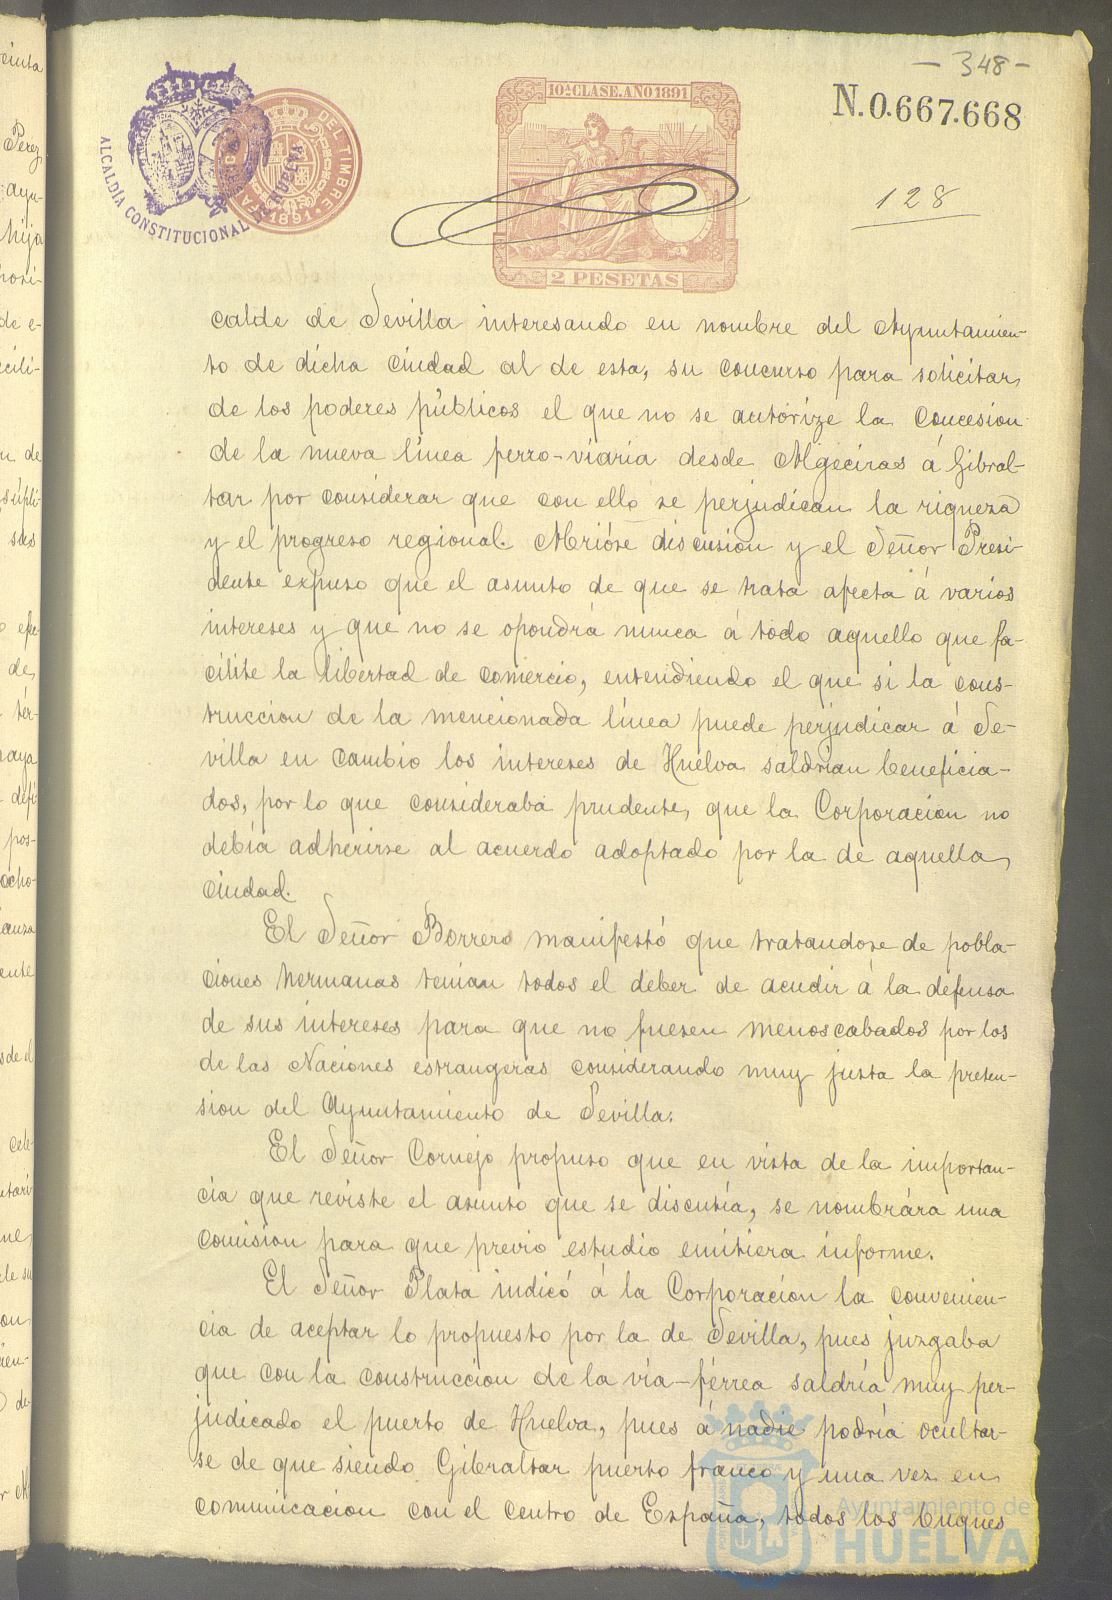 - 348 -
10ª CLASE. AÑO 1891
N.0.667.668
ALCALDÍA CONSTITUCIONAL HUELVA
DEL TIMBRE 1891
128
2 PESETAS
calde de Sevilla interesando en nombre del Ayuntamien-
to de dicha Ciudad al de esta, su concurso para solicitar
de los poderes públicos el que no se autorize la Concesion
de la nueva línea ferro-viaria desde Algeciras á Gibral-
tar por considerar que con ello se perjudican la riqueza
y el progreso regional. Abrióse discusion y el Señor Presi-
dente expuso que el asunto de que se trata afecta á varios
intereses y que no se opondrá nunca á todo aquello que fa-
cilite la libertad de comercio, entendiendo el que si la cons-
truccion de la mencionada línea puede perjudicar á Se-
villa en cambio los intereses de Huelva saldrian beneficia-
dos, por lo que consideraba prudente, que la Corporacion no
debía adherirse al acuerdo adoptado por la de aquella
Ciudad.
El Señor Borrero manifestó que tratandose de pobla-
ciones hermanas tenian todos el deber de acudir á la defensa
de sus intereses para que no fuesen menoscabados por los
de las Naciones estrangeras considerando muy justa la preten-
sion del Ayuntamiento de Sevilla.
El Señor Cornejo propuso que en vista de la importan-
cia que reviste el asunto que se discutía, se nombrára una
Comision para que previo estudio emitiera informe.
El Señor Plata indicó á la Corporacion la convenien-
cia de aceptar lo propuesto por la de Sevilla, pues juzgaba
que con la construccion de la vía-férrea saldría muy per-
judicado el puerto de Huelva, pues á nadie podría ocultar-
se de que siendo Gibraltar puerto franco y una vez en
comunicacion con el centro de España, todos los buques
Ayuntamiento de
HUELVA